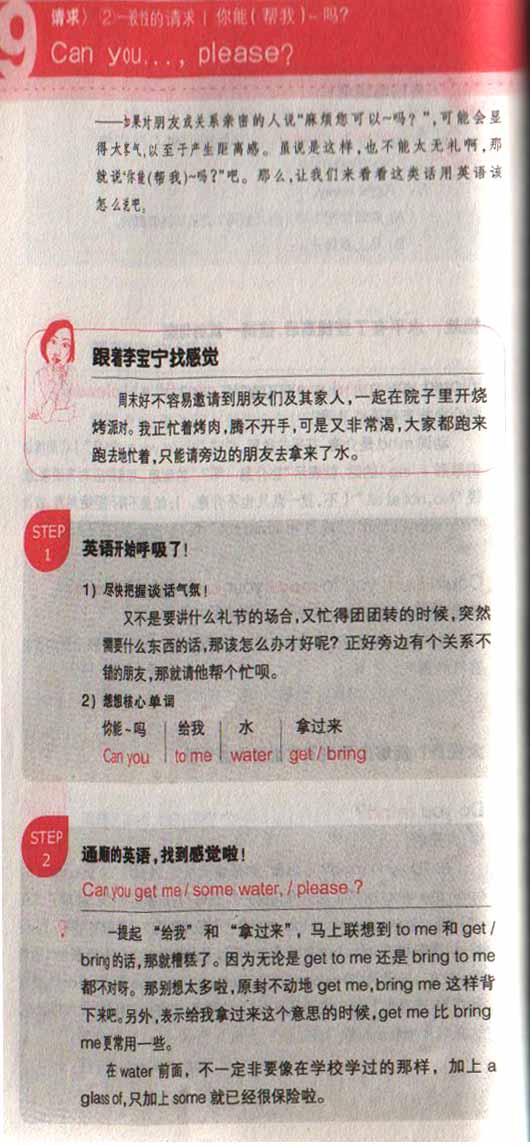 9
请求〉②一般性的请求 | 你能(帮我)~吗?
Can you..., please?
——如果对朋友或关系亲密的人说“麻烦您可以~吗?”,可能会显
得太客气,以至于产生距离感。虽说是这样,也不能太无礼啊,那
就说“你能(帮我)~吗?”吧。那么,让我们来看看这类话用英语该
怎么说吧。
跟着李宝宁找感觉
周末好不容易邀请到朋友们及其家人,一起在院子里开烧
烤派对。我正忙着烤肉,腾不开手,可是又非常渴,大家都跑来
跑去地忙着,只能请旁边的朋友去拿来了水。
STEP
1
英语开始呼吸了!
1) 尽快把握谈话气氛!
又不是要讲什么礼节的场合,又忙得团团转的时候,突然
需要什么东西的话,那该怎么办才好呢? 正好旁边有个关系不
错的朋友,那就请他帮个忙呗。
2) 想想核心单词
你能~吗 给我 水 拿过来
Can you to me water get / bring
STEP
2
通顺的英语,找到感觉啦!
Can you get me / some water, / please ?
一提起 “给我” 和 “拿过来”, 马上联想到 to me 和 get /
bring 的话,那就糟糕了。因为无论是 get to me 还是 bring to me
都不对呀。那别想太多啦,原封不动地 get me,bring me 这样背
下来吧。另外,表示给我拿过来这个意思的时候,get me 比 bring
me 更常用一些。
在 water 前面, 不一定非要像在学校学过的那样, 加上 a
glass of,只加上 some 就已经很保险啦。